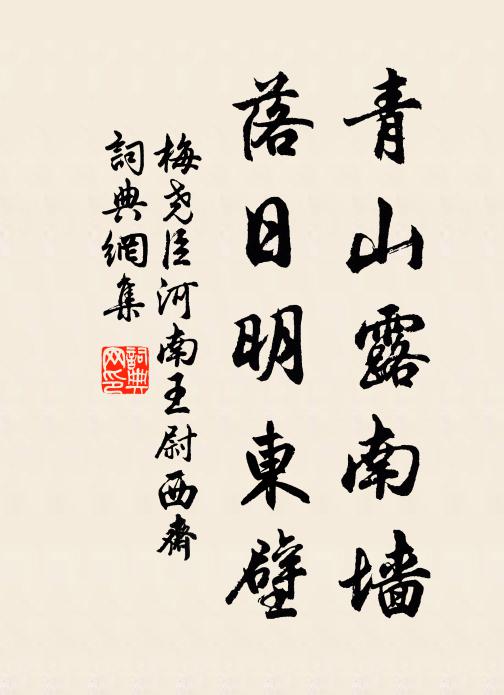 青山露南墙
落日明東壁
梅尧臣河南王尉西齋
詞典網集
詞典网印